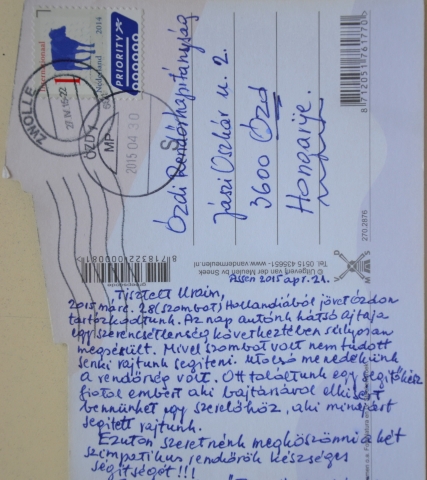 Internationaal
1
Nederland 2014
PRIORITY
ZWOLLE
27 IV 15-22
ÓZD 1
MP
2015 04 30
Ózdi Rendőrkapitányság
Jászi Oszkár u. 2.
3600 Ózd
Hongarije.
8712051761770
270.2876
8718322000081
© Uitgeverij van der Meulen bv Sneek
Tel. 0515-435651 - www.vandermeulen.nl
Assen 2015 apr. 24.
Tisztelt Uraim,
2015 márc. 28 (szombat) Hollandiából jövet Ózdon
tartózkodtunk. Az nap autónk hátsó ajtaja
egy szerencsetlenség következtében súlyosan
megsérült. Mivel szombat volt nem tudott
senki rajtunk segíteni. Utolsó menedékünk
a rendőrség volt. Ott találtunk egy segítőkész
fiatal embert aki bajtársával elkísért
bennünket egy szerelőhöz, aki mindjárt
segített rajtunk.
Ezúton szeretnénk megköszönni a két
szimpatikus rendőrök készséges
segítségét!!!